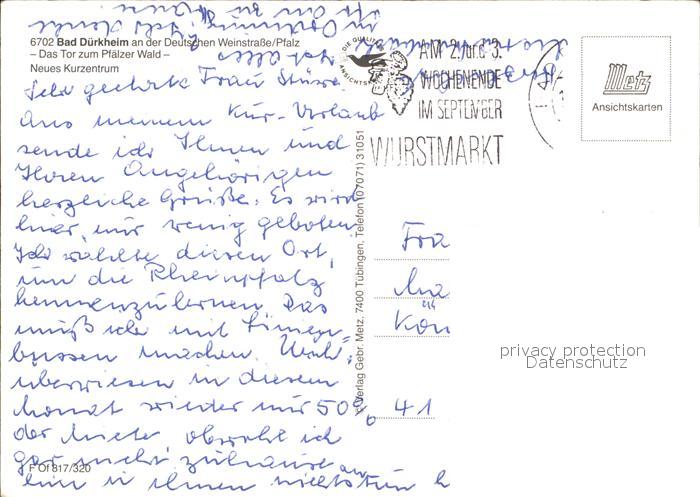 6702 Bad Dürkheim an der Deutschen Weinstraße/Pfalz
– Das Tor zum Pfälzer Wald –
Neues Kurzentrum
DIE QUALITÄTS
ANSICHTSKARTE
AM 2. und 3.
WOCHENENDE
IM SEPTEMBER
WURSTMARKT
Metz
Ansichtskarten
Sehr geehrte Frau
Aus meinem Kur-Urlaub
sende ich Ihnen und
Ihren Angehörigen
herzliche Grüße. Es wird
hier nur wenig geboten
Ich wählte diesen Ort,
um die Rheinpfalz
kennenzulernen Das
muß ich mit
büssen machen
überwiesen in diesem
Monat wieder nur 50%
der Miete obwohl ich
gar nicht zuhause
bin
© Verlag Gebr. Metz, 7400 Tübingen, Telefon (07071) 31051
Fra
Kön
41
privacy protection
Datenschutz
F Of 817/320